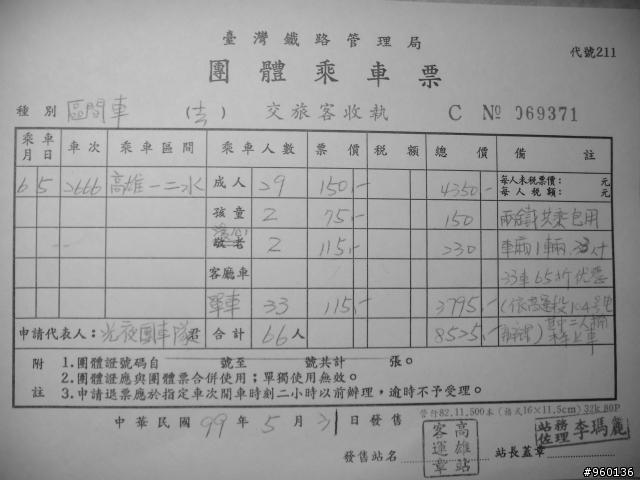 臺灣鐵路管理局
代號211
團體乘車票
種別 區間車 (去) 交旅客收執 C № 069371
乘車月日 車次 乘車區間 乘車人數 票價 稅額 總價 備註
6 5 2666 高雄-二水 成人 29 150.- 4350.- 每人未稅票價: 元
每人稅額: 元
孩童 2 75.- 150 兩鐵共乘包用
敬老 2 115.- 230 車輛1輛
客廳車 33車65折优惠
單車 33 115.- 3795.-
申請代表人:光夜單車隊君 合計 66人 8525.-
附註 1.團體證號碼自 號至 號共計 張。
2.團體證應與團體票合併使用;單獨使用無效。
3.申請退票應於指定車次開車時刻二小時以前辦理,逾時不予受理。
管仔82.11.500本(格式16×11.5cm)32k 80P
中華民國99年5月31日發售
發售站名 高雄站客運章 站長蓋章 站務佐理李瑪麗
#960136